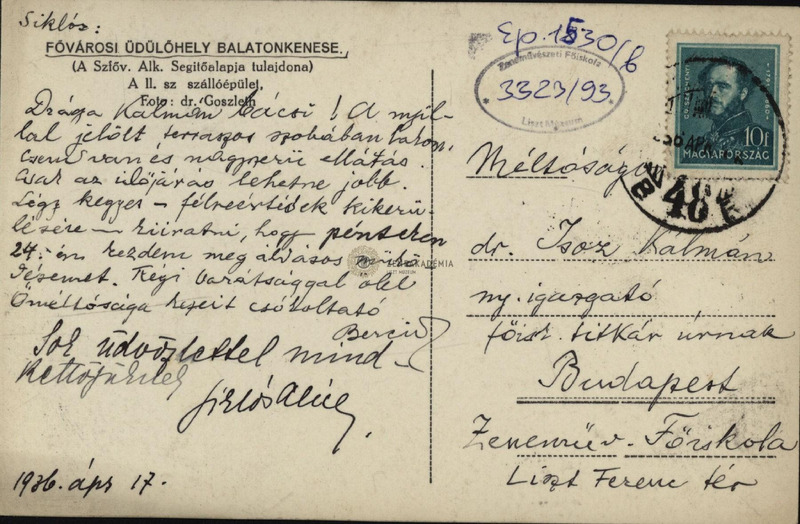 Siklós:
FŐVÁROSI ÜDÜLŐHELY BALATONKENESE.
(A Szfőv. Alk. Segitőalapja tulajdona)
A II. sz szállóépület,
Foto: dr. Goszleth
Drága Kálmán bácsi! A nyil-
lal jelölt terraszos szobában lakom,
csend van és nagyszerü ellátás.
Csak az időjárás lehetne jobb.
Légy kegyes – félreértések kikerü-
lésére – kiiratni, hogy pénteken
24.-én kezdem meg
Régi barátsággal ölel
Őméltósága kezeit csókoltató
Berci
Sok üdvözlettel mind-
kettőjüket
Siklós Alice
1936. ápr 17.
Ep. 1530/b
Zeneművészeti Főiskola
3323/93
Liszt Múzeum
10f
MAGYARORSZÁG
40
Méltóságos
dr. Isoz Kálmán
ny. igazgató
főisk. titkár úrnak
Budapest
Zeneműv. Főiskola
Liszt Ferenc tér
ZENEAKADÉMIA
LISZT MÚZEUM